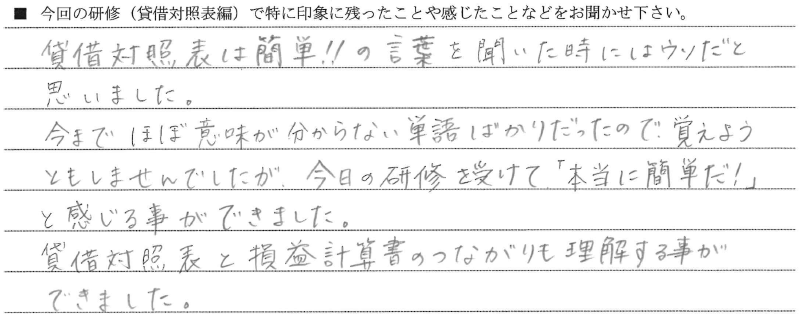 ■ 今回の研修（貸借対照表編）で特に印象に残ったことや感じたことなどをお聞かせ下さい。
貸借対照表は簡単!!の言葉を聞いた時にはウソだと
思いました。
今までほぼ意味が分からない単語ばかりだったので、覚えよう
ともしませんでしたが、今日の研修を受けて「本当に簡単だ!」
と感じる事ができました。
貸借対照表と損益計算書のつながりも理解する事が
できました。